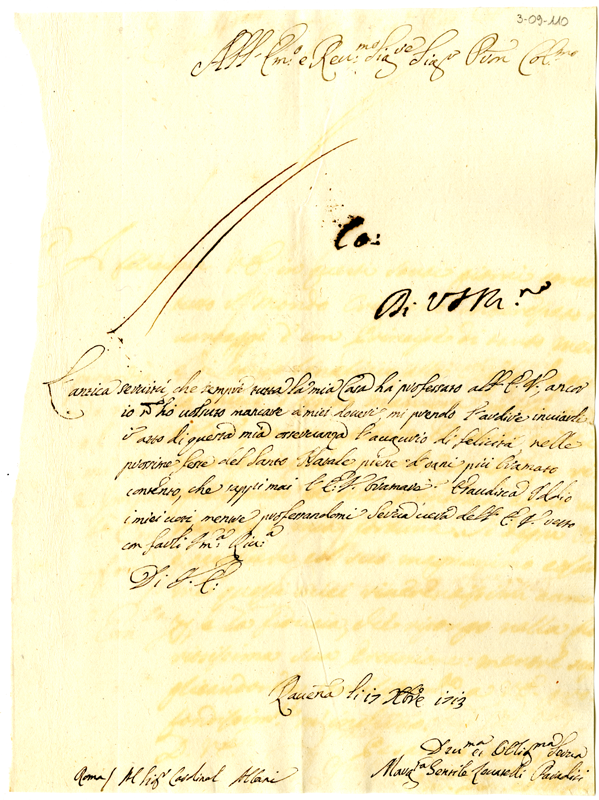 3-09-110
All' Em.º e Reu.mo Sig.re Sig.r Pron Col.mo
Co:
Di
L'antica seruitù che sempre tutta la mia Casa ha professato all' E. V., ancor
io ñ ho uoluto mancare a miei doueri, mi prendo l'ardire inuiarli
l' atto di questa mia osseruanza l'augurio di felicità nelle
prossime feste del Santo Natale piene d' ogni più bramato
contento, che sappi mai l' E. V. bramare. Esaudisca Iddio
i miei uoti mentre professandomi Serua uera dell' E. V. resto
con farli
Di V. E.
Rauenna li 17 Xbre 1713
Deu.ma et Oblig.ma Serua
Gentile
Roma / Al Sig.r Cardinal Albani